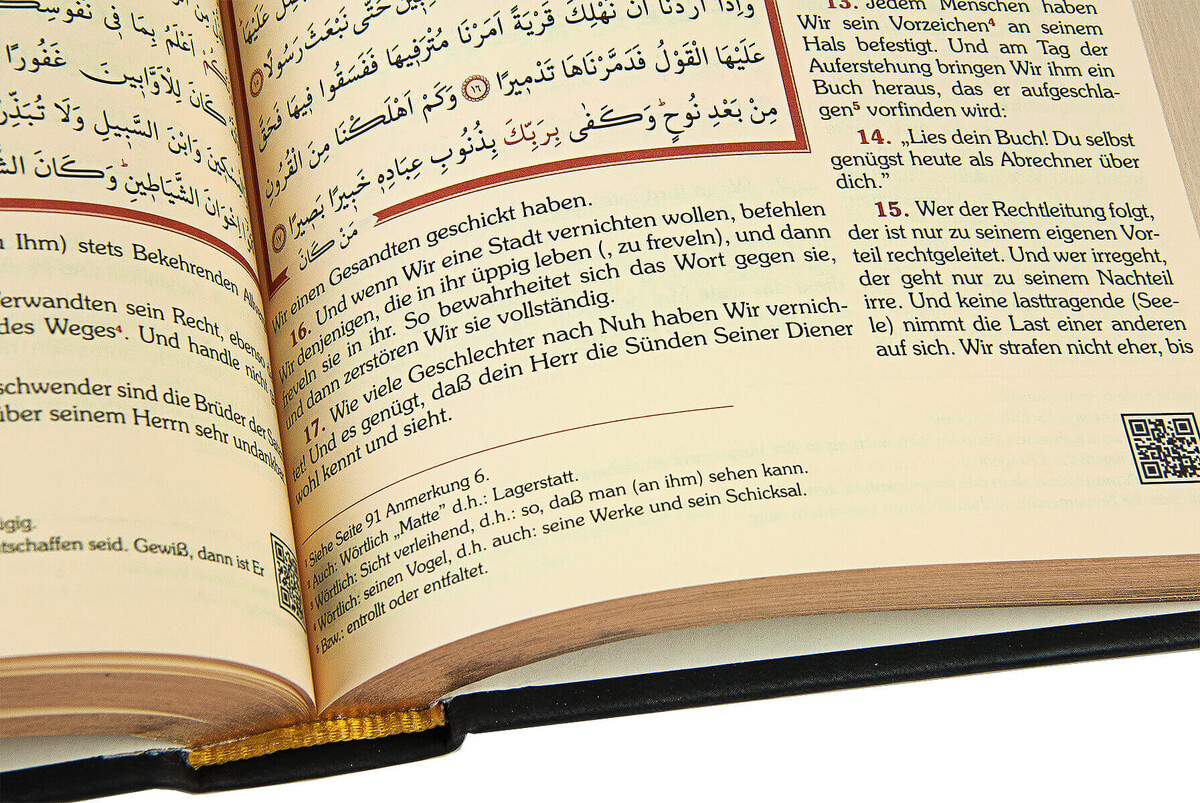 أَعْلَمُ بِمَا فِي نُفُوسِكُمْ
كَانَ لِلْأَوَّابِينَ غَفُورًا
وَابْنَ السَّبِيلِ وَلَا تُبَذِّرْ
إِخْوَانَ الشَّيَاطِينِ وَكَانَ
Ihm) stets Bekehrenden
erwandten sein Recht, ebenso
des Weges⁴. Und handle nicht
schwender sind die Brüder der
über seinem Herrn sehr undankbar
tschaffen seid. Gewiß, dann ist Er
حَتَّى نَبْعَثَ رَسُولًا ١٥
وَإِذَا أَرَدْنَا أَنْ نُهْلِكَ قَرْيَةً أَمَرْنَا مُتْرَفِيهَا فَفَسَقُوا فِيهَا فَحَقَّ
عَلَيْهَا الْقَوْلُ فَدَمَّرْنَاهَا تَدْمِيرًا ١٦ وَكَمْ أَهْلَكْنَا مِنَ الْقُرُونِ
مِنْ بَعْدِ نُوحٍ وَكَفَى بِرَبِّكَ بِذُنُوبِ عِبَادِهِ خَبِيرًا بَصِيرًا ١٧
مَنْ كَانَ
13. Jedem Menschen haben
Wir sein Vorzeichen⁴ an seinem
Hals befestigt. Und am Tag der
Auferstehung bringen Wir ihm ein
Buch heraus, das er aufgeschla-
gen⁵ vorfinden wird:
14. „Lies dein Buch! Du selbst
genügst heute als Abrechner über
dich.”
15. Wer der Rechtleitung folgt,
der ist nur zu seinem eigenen Vor-
teil rechtgeleitet. Und wer irregeht,
der geht nur zu seinem Nachteil
irre. Und keine lasttragende (See-
le) nimmt die Last einer anderen
auf sich. Wir strafen nicht eher, bis
Wir einen Gesandten geschickt haben.
16. Und wenn Wir eine Stadt vernichten wollen, befehlen
Wir denjenigen, die in ihr üppig leben (, zu freveln), und dann
freveln sie in ihr. So bewahrheitet sich das Wort gegen sie,
und dann zerstören Wir sie vollständig.
17. Wie viele Geschlechter nach Nuh haben Wir vernich-
tet! Und es genügt, daß dein Herr die Sünden Seiner Diener
wohl kennt und sieht.
¹ Siehe Seite 91 Anmerkung 6.
² Auch: Wörtlich „Matte” d.h.: Lagerstatt.
³ Wörtlich: Sicht verleihend, d.h.: so, daß man (an ihm) sehen kann.
⁴ Wörtlich: seinen Vogel, d.h. auch: seine Werke und sein Schicksal.
⁵ Bzw.: entrollt oder entfaltet.